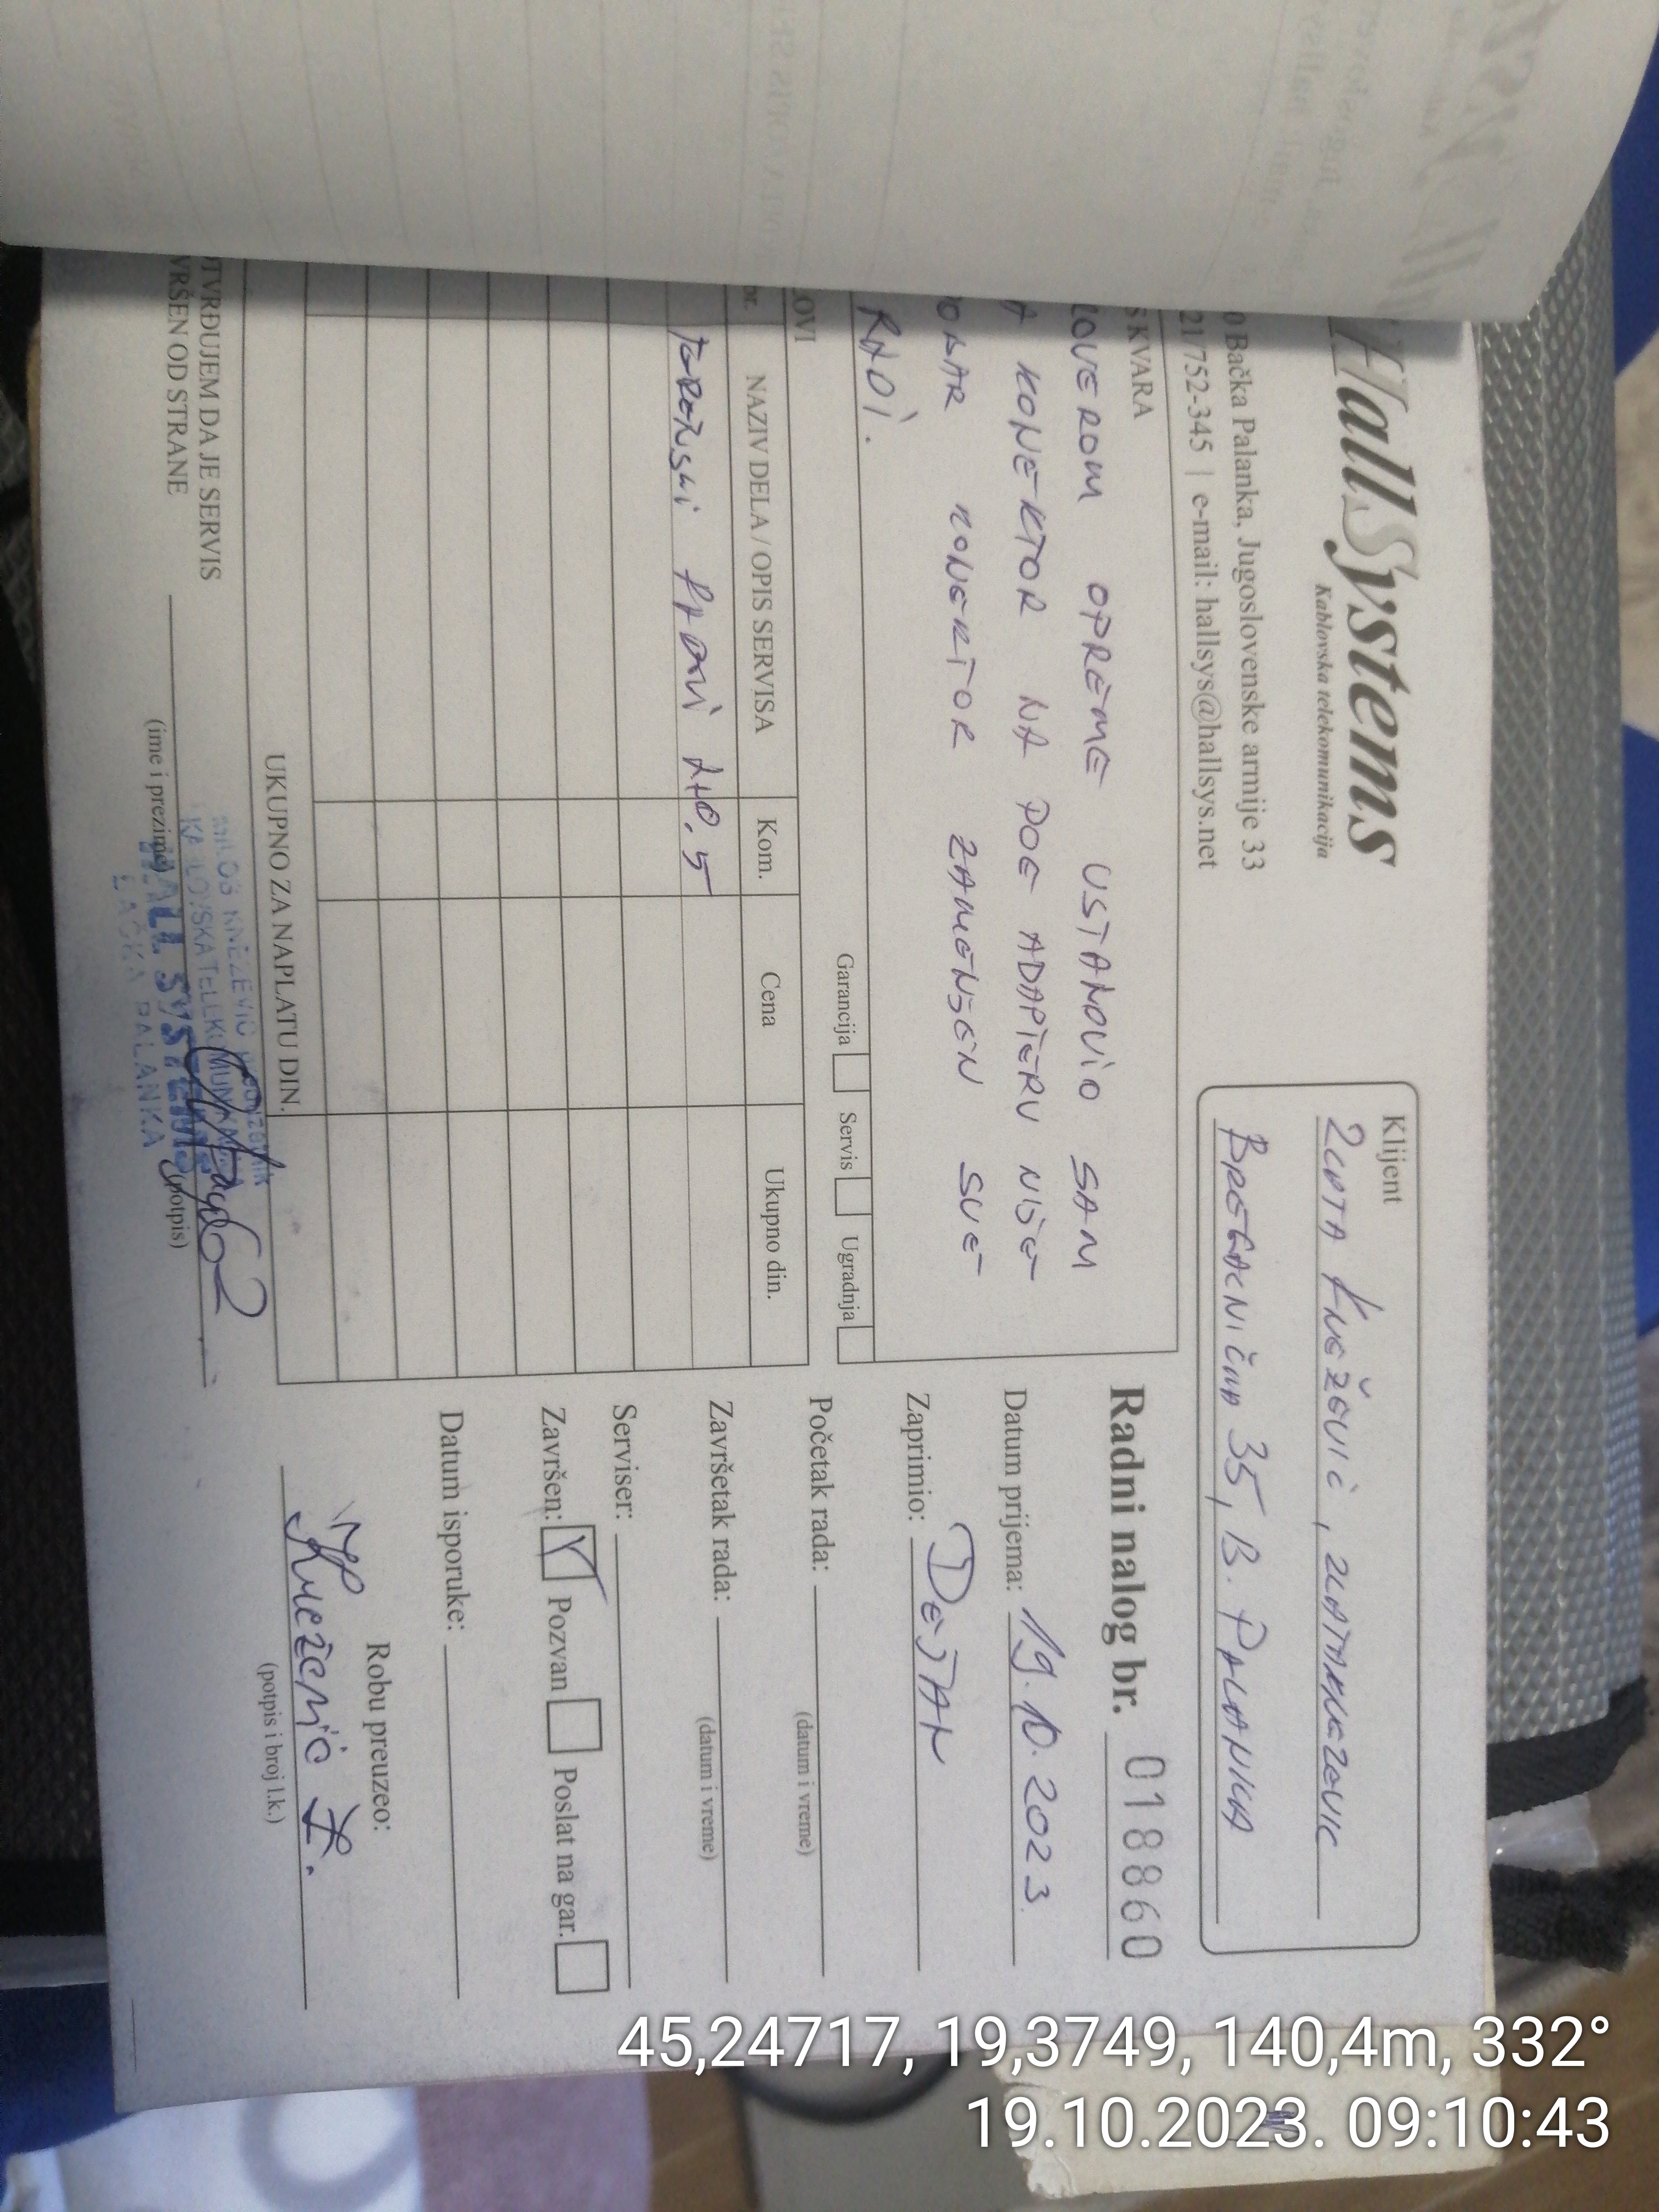 HallSystems
Kablovska telekomunikacija
0 Bačka Palanka, Jugoslovenske armije 33
21/752-345 | e-mail: hallsys@hallsys.net
Klijent
ZLATA KNEŽEVIĆ, ZLATAKNEZEVIC
BREGALNIČKA 35, B. PALANKA
S KVARA
OVEROM OPREME USTANOVIO SAM
A KONEKTOR NA POE ADAPTERU NIJE
OBAR KONEKTOR ZAMENJEN SVE
RADI.
Garancija Servis Ugradnja
LOVI
br. NAZIV DELA / OPIS SERVISA Kom. Cena Ukupno din.
TERENSKI RADNI 0,5
UKUPNO ZA NAPLATU DIN.
OTVRĐUJEM DA JE SERVIS
VRŠEN OD STRANE
(ime i prezime) (potpis)
MILOŠ KNEŽEVIĆ
HALL SYSTEMS
BAČKA PALANKA
Radni nalog br. 018860
Datum prijema: 19.10.2023.
Zaprimio: DEJAN
Početak rada:
(datum i vreme)
Završetak rada:
(datum i vreme)
Serviser:
Završen: Pozvan Poslat na gar.
Datum isporuke:
Robu preuzeo:
Knežević Z.
(potpis i broj l.k.)
45,24717, 19,3749, 140,4m, 332°
19.10.2023. 09:10:43